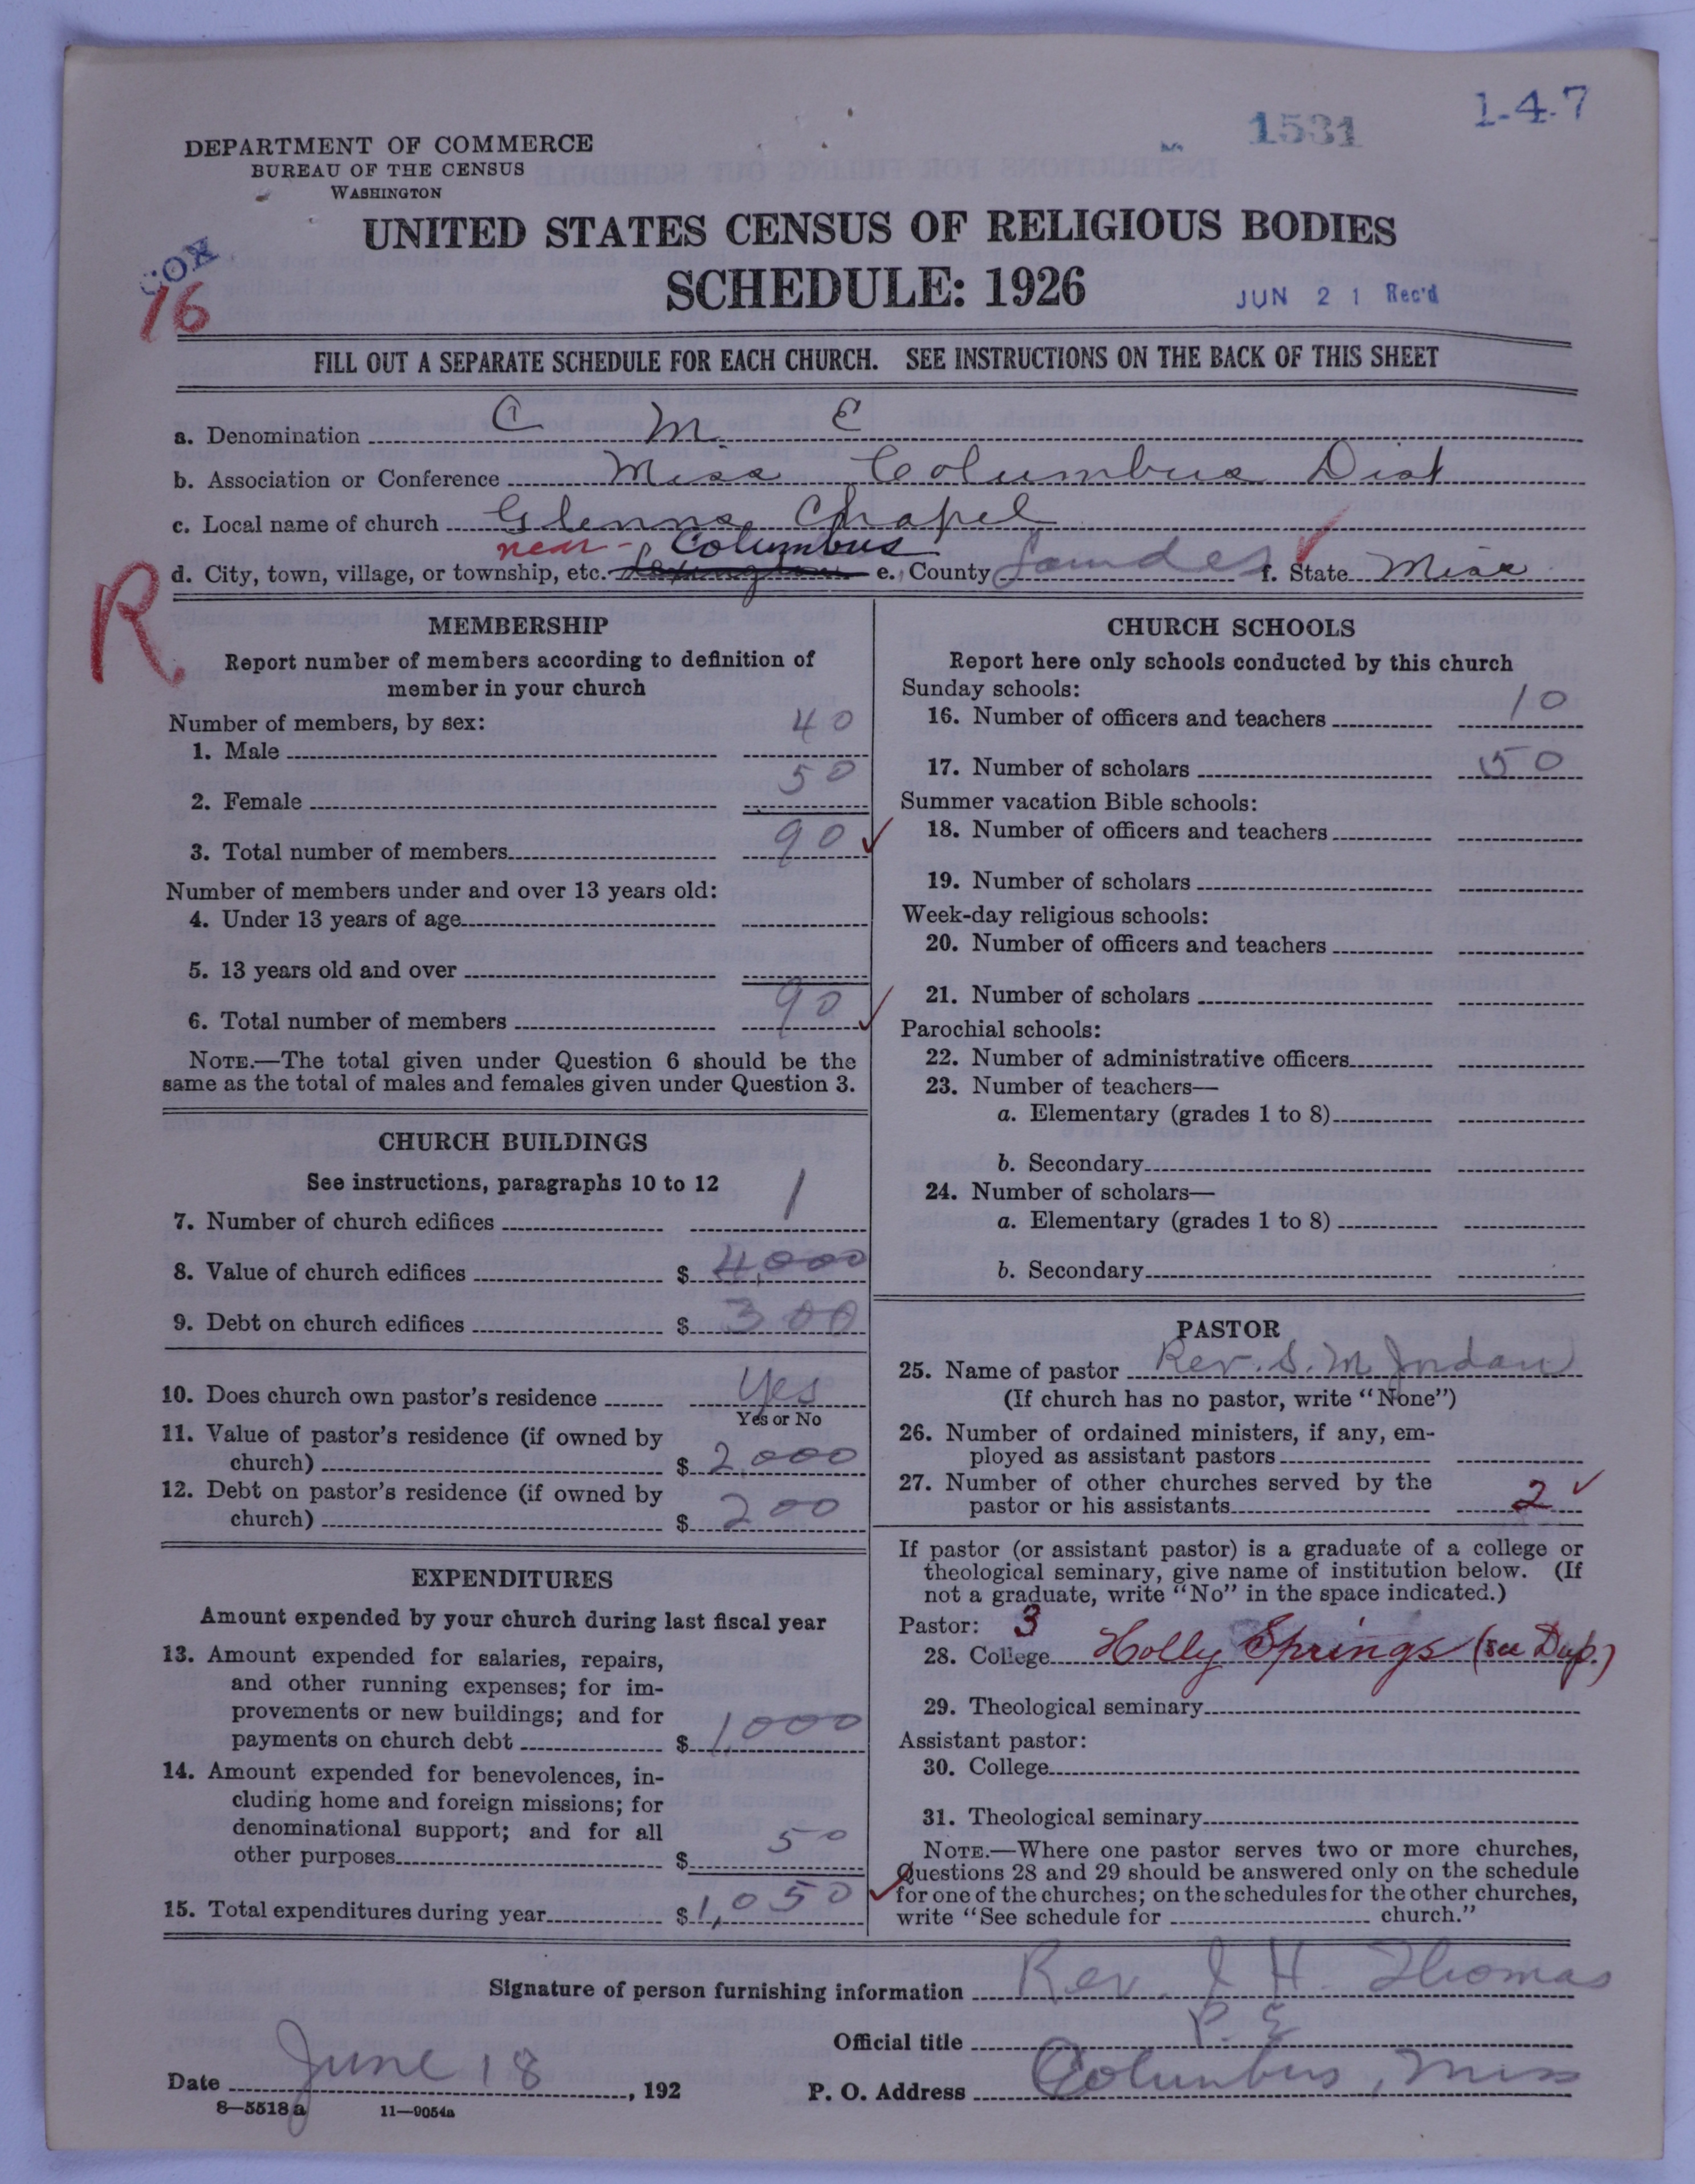 1-4-7
1531
DEPARTMENT OF COMMERCE
BUREAU OF THE CENSUS
WASHINGTON
UNITED STATES CENSUS OF RELIGIOUS BODIES
COX
16
SCHEDULE: 1926
JUN 21 Rec'd
FILL OUT A SEPARATE SCHEDULE FOR EACH CHURCH. SEE INSTRUCTIONS ON THE BACK OF THIS SHEET
a. Denomination C M E
b. Association or Conference Miss Columbus Dist
c. Local name of church Glenns Chapel
near - Columbus
d. City, town, village, or township, etc. e. County Lowndes f. State Miss
R
MEMBERSHIP
Report number of members according to definition of
member in your church
Number of members, by sex:
1. Male 40
2. Female 50
3. Total number of members 90
Number of members under and over 13 years old:
4. Under 13 years of age
5. 13 years old and over
6. Total number of members 90
NOTE.—The total given under Question 6 should be the
same as the total of males and females given under Question 3.
CHURCH BUILDINGS
See instructions, paragraphs 10 to 12
7. Number of church edifices 1
8. Value of church edifices $ 4,000
9. Debt on church edifices $ 300
10. Does church own pastor's residence Yes
Yes or No
11. Value of pastor's residence (if owned by
church) $ 2,000
12. Debt on pastor's residence (if owned by
church) $ 200
EXPENDITURES
Amount expended by your church during last fiscal year
13. Amount expended for salaries, repairs,
and other running expenses; for im-
provements or new buildings; and for
payments on church debt $ 1,000
14. Amount expended for benevolences, in-
cluding home and foreign missions; for
denominational support; and for all
other purposes $ 50
15. Total expenditures during year $ 1,050
CHURCH SCHOOLS
Report here only schools conducted by this church
Sunday schools:
16. Number of officers and teachers 10
17. Number of scholars 50
Summer vacation Bible schools:
18. Number of officers and teachers
19. Number of scholars
Week-day religious schools:
20. Number of officers and teachers
21. Number of scholars
Parochial schools:
22. Number of administrative officers
23. Number of teachers—
a. Elementary (grades 1 to 8)
b. Secondary
24. Number of scholars—
a. Elementary (grades 1 to 8)
b. Secondary
PASTOR
25. Name of pastor Rev. S. M Jordan
(If church has no pastor, write "None")
26. Number of ordained ministers, if any, em-
ployed as assistant pastors
27. Number of other churches served by the
pastor or his assistants 2
If pastor (or assistant pastor) is a graduate of a college or
theological seminary, give name of institution below. (If
not a graduate, write "No" in the space indicated.)
Pastor: 3
28. College Holly Springs (see Dup.)
29. Theological seminary
Assistant pastor:
30. College
31. Theological seminary
NOTE.—Where one pastor serves two or more churches,
Questions 28 and 29 should be answered only on the schedule
for one of the churches; on the schedules for the other churches,
write "See schedule for church."
Signature of person furnishing information Rev. J H. Thomas
Official title P. E
Date June 18, 192
P. O. Address Columbus, Miss
8—5518 a 11—9054a